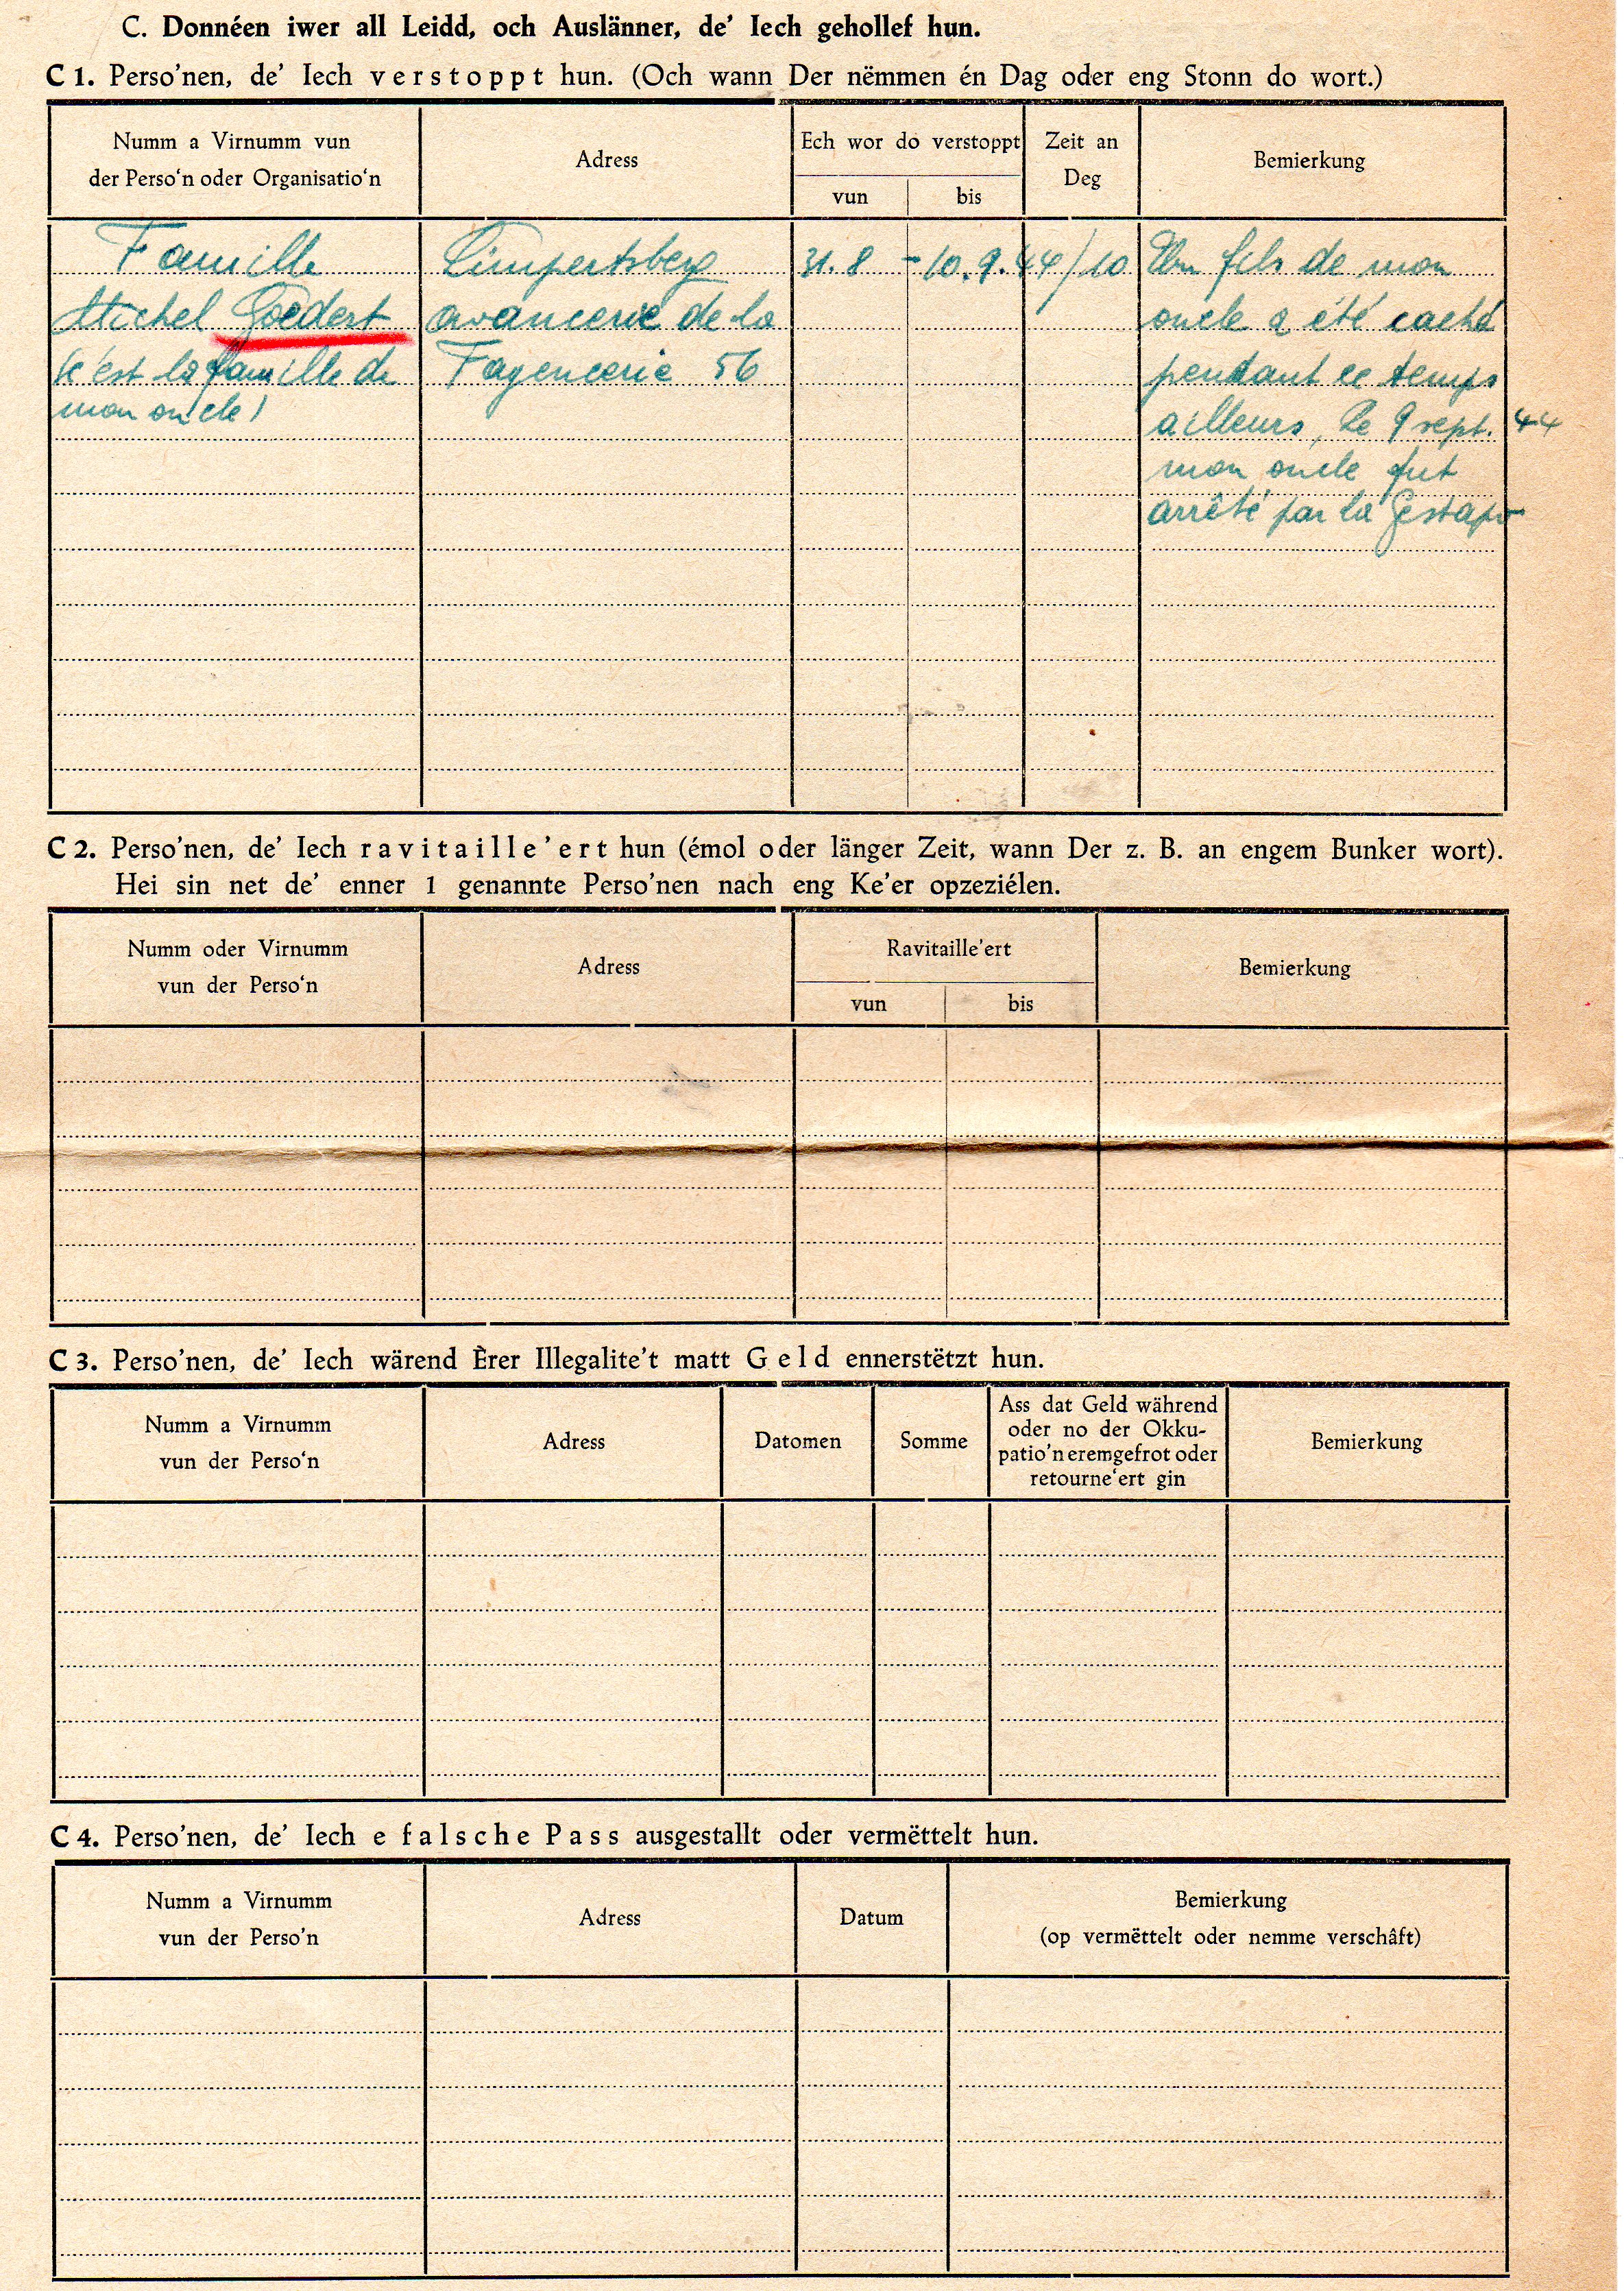 C. Donnéen iwer all Leidd, och Auslänner, de’ Iech gehollef hun.
C 1. Perso’nen, de’ Iech verstoppt hun. (Och wann Der nëmmen én Dag oder eng Stonn do wort.)
Numm a Virnumm vun
der Perso‘n oder Organisatio‘n
Adress
Ech wor do verstoppt
vun
bis
Zeit an
Deg
Bemierkung
Famille
Michel Goedert
(c'est la famille de
mon oncle)
Limpertsberg
avancerie de la
Fayencerie 56
31.8 - 10.9.44 / 10
Un fils de mon
oncle a été caché
pendant ce temps
ailleurs, Le 9 sept. 44
mon oncle fut
arrêté par la Gestapo
C 2. Perso’nen, de’ Iech ravitaille’ert hun (émol oder länger Zeit, wann Der z. B. an engem Bunker wort).
Hei sin net de’ enner 1 genannte Perso’nen nach eng Ke’er opzeziélen.
Numm oder Virnumm
vun der Perso‘n
Adress
Ravitaille’ert
vun
bis
Bemierkung
C 3. Perso’nen, de’ Iech wärend Èrer Illegalite’t matt Geld ennerstëtzt hun.
Numm a Virnumm
vun der Perso‘n
Adress
Datomen
Somme
Ass dat Geld während
oder no der Okku-
patio’n eremgefrot oder
retourne‘ert gin
Bemierkung
C 4. Perso’nen, de’ Iech e falsche Pass ausgestallt oder vermëttelt hun.
Numm a Virnumm
vun der Perso’n
Adress
Datum
Bemierkung
(op vermëttelt oder nemme verschâft)